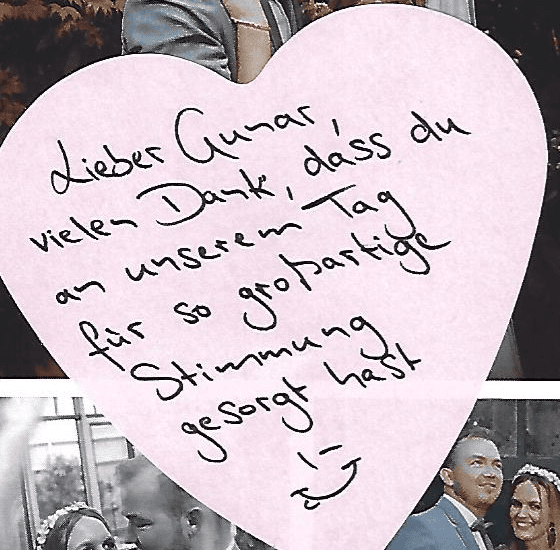 Lieber Gunar,
vielen Dank, dass du
an unserem Tag
für so großartige
Stimmung
gesorgt hast